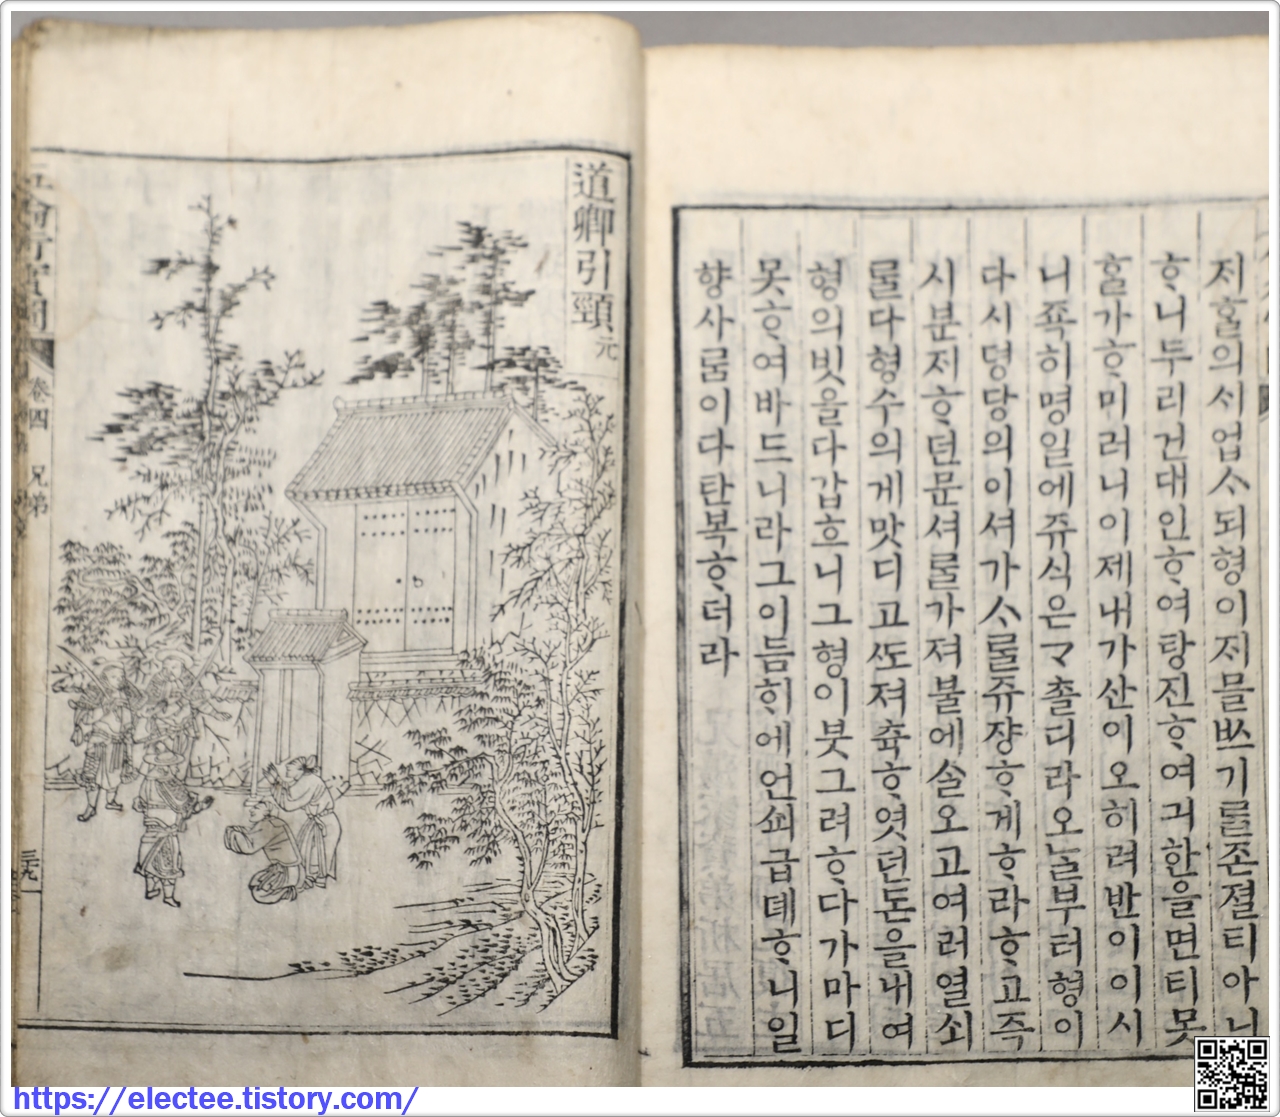 저희 홀의 셔업ᄉᆞ되 형이 져믈 ᄡᅳ기ᄅᆞᆯ 존졀티 아니
ᄒᆞ니 두리건대 인ᄒᆞ여 탕진ᄒᆞ여 긔한을 면티 못
ᄒᆞᆯ가 ᄒᆞ미러니 이제 내 가산이 오히려 반이 이시
니 죡히 명일에 쥬식은 ᄀᆞ촐디라 오ᄂᆞᆯ부터 형이
다시 뎡당의 이셔 가ᄉᆞᄅᆞᆯ 쥬쟝ᄒᆞ게 ᄒᆞ라 ᄒᆞ고 즉
시 분져ᄒᆞ던 문셔ᄅᆞᆯ 가져 블에 ᄉᆞᆯ오고 여러 열쇠
ᄅᆞᆯ 다 형수의게 맛디고 ᄯᅩ 져츅ᄒᆞ엿던 돈을 내여
형의 빗을 다 갑흐니 그 형이 붓그려ᄒᆞ다가 마디
못ᄒᆞ여 바드니라 그 이듬ᄒᆡ에 언쇠 급뎨ᄒᆞ니 일
향 사ᄅᆞᆷ이 다 탄복ᄒᆞ더라
道卿引頸 元
五倫行實圖 卷四 兄弟
https://electee.tistory.com/